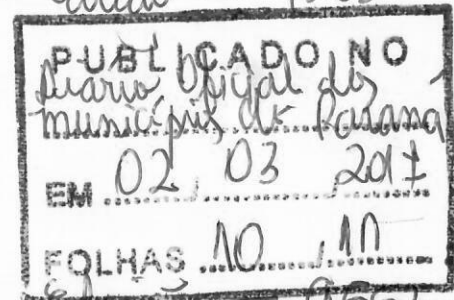 PUBLICADO NO
Diário Oficial dos
municípios do Paraná
EM 02 / 03 / 2017
FOLHAS 10 / 11